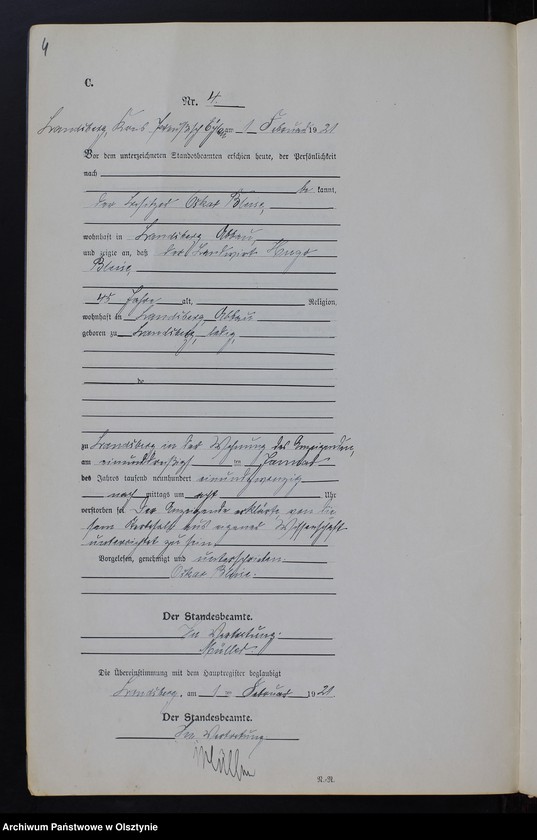 4
C.
Nr. 4.
Landsberg, Kreis Preußisch Eylau am 1 Februar 1921
Vor dem unterzeichneten Standesbeamten erschien heute, der Persönlichkeit
nach
be kannt,
der Besitzer Oskar
wohnhaft in Landsberg Abbau,
und zeigte an, daß der Landwirt Hugo
45 Jahre alt, Religion,
wohnhaft in Landsberg Abbau
geboren zu Landsberg, ledig,
de
zu Landsberg in der Wohnung des Anzeigenden,
am einunddreißig ten Januar
des Jahres tausend neunhundert einundzwanzig
nach mittags um acht Uhr
verstorben sei. Der Anzeigende erklärte von die
sem Sterbefall aus eigener Wissenschaft
unterrichtet zu sein.
Vorgelesen, genehmigt und unterschrieben.
Oskar
Der Standesbeamte.
In Vertretung.
Müller
Die Übereinstimmung mit dem Hauptregister beglaubigt
Landsberg, am 1 ten Februar 1921
Der Standesbeamte.
In Vertretung.
Müller
N.-R.
Archiwum Państwowe w Olsztynie